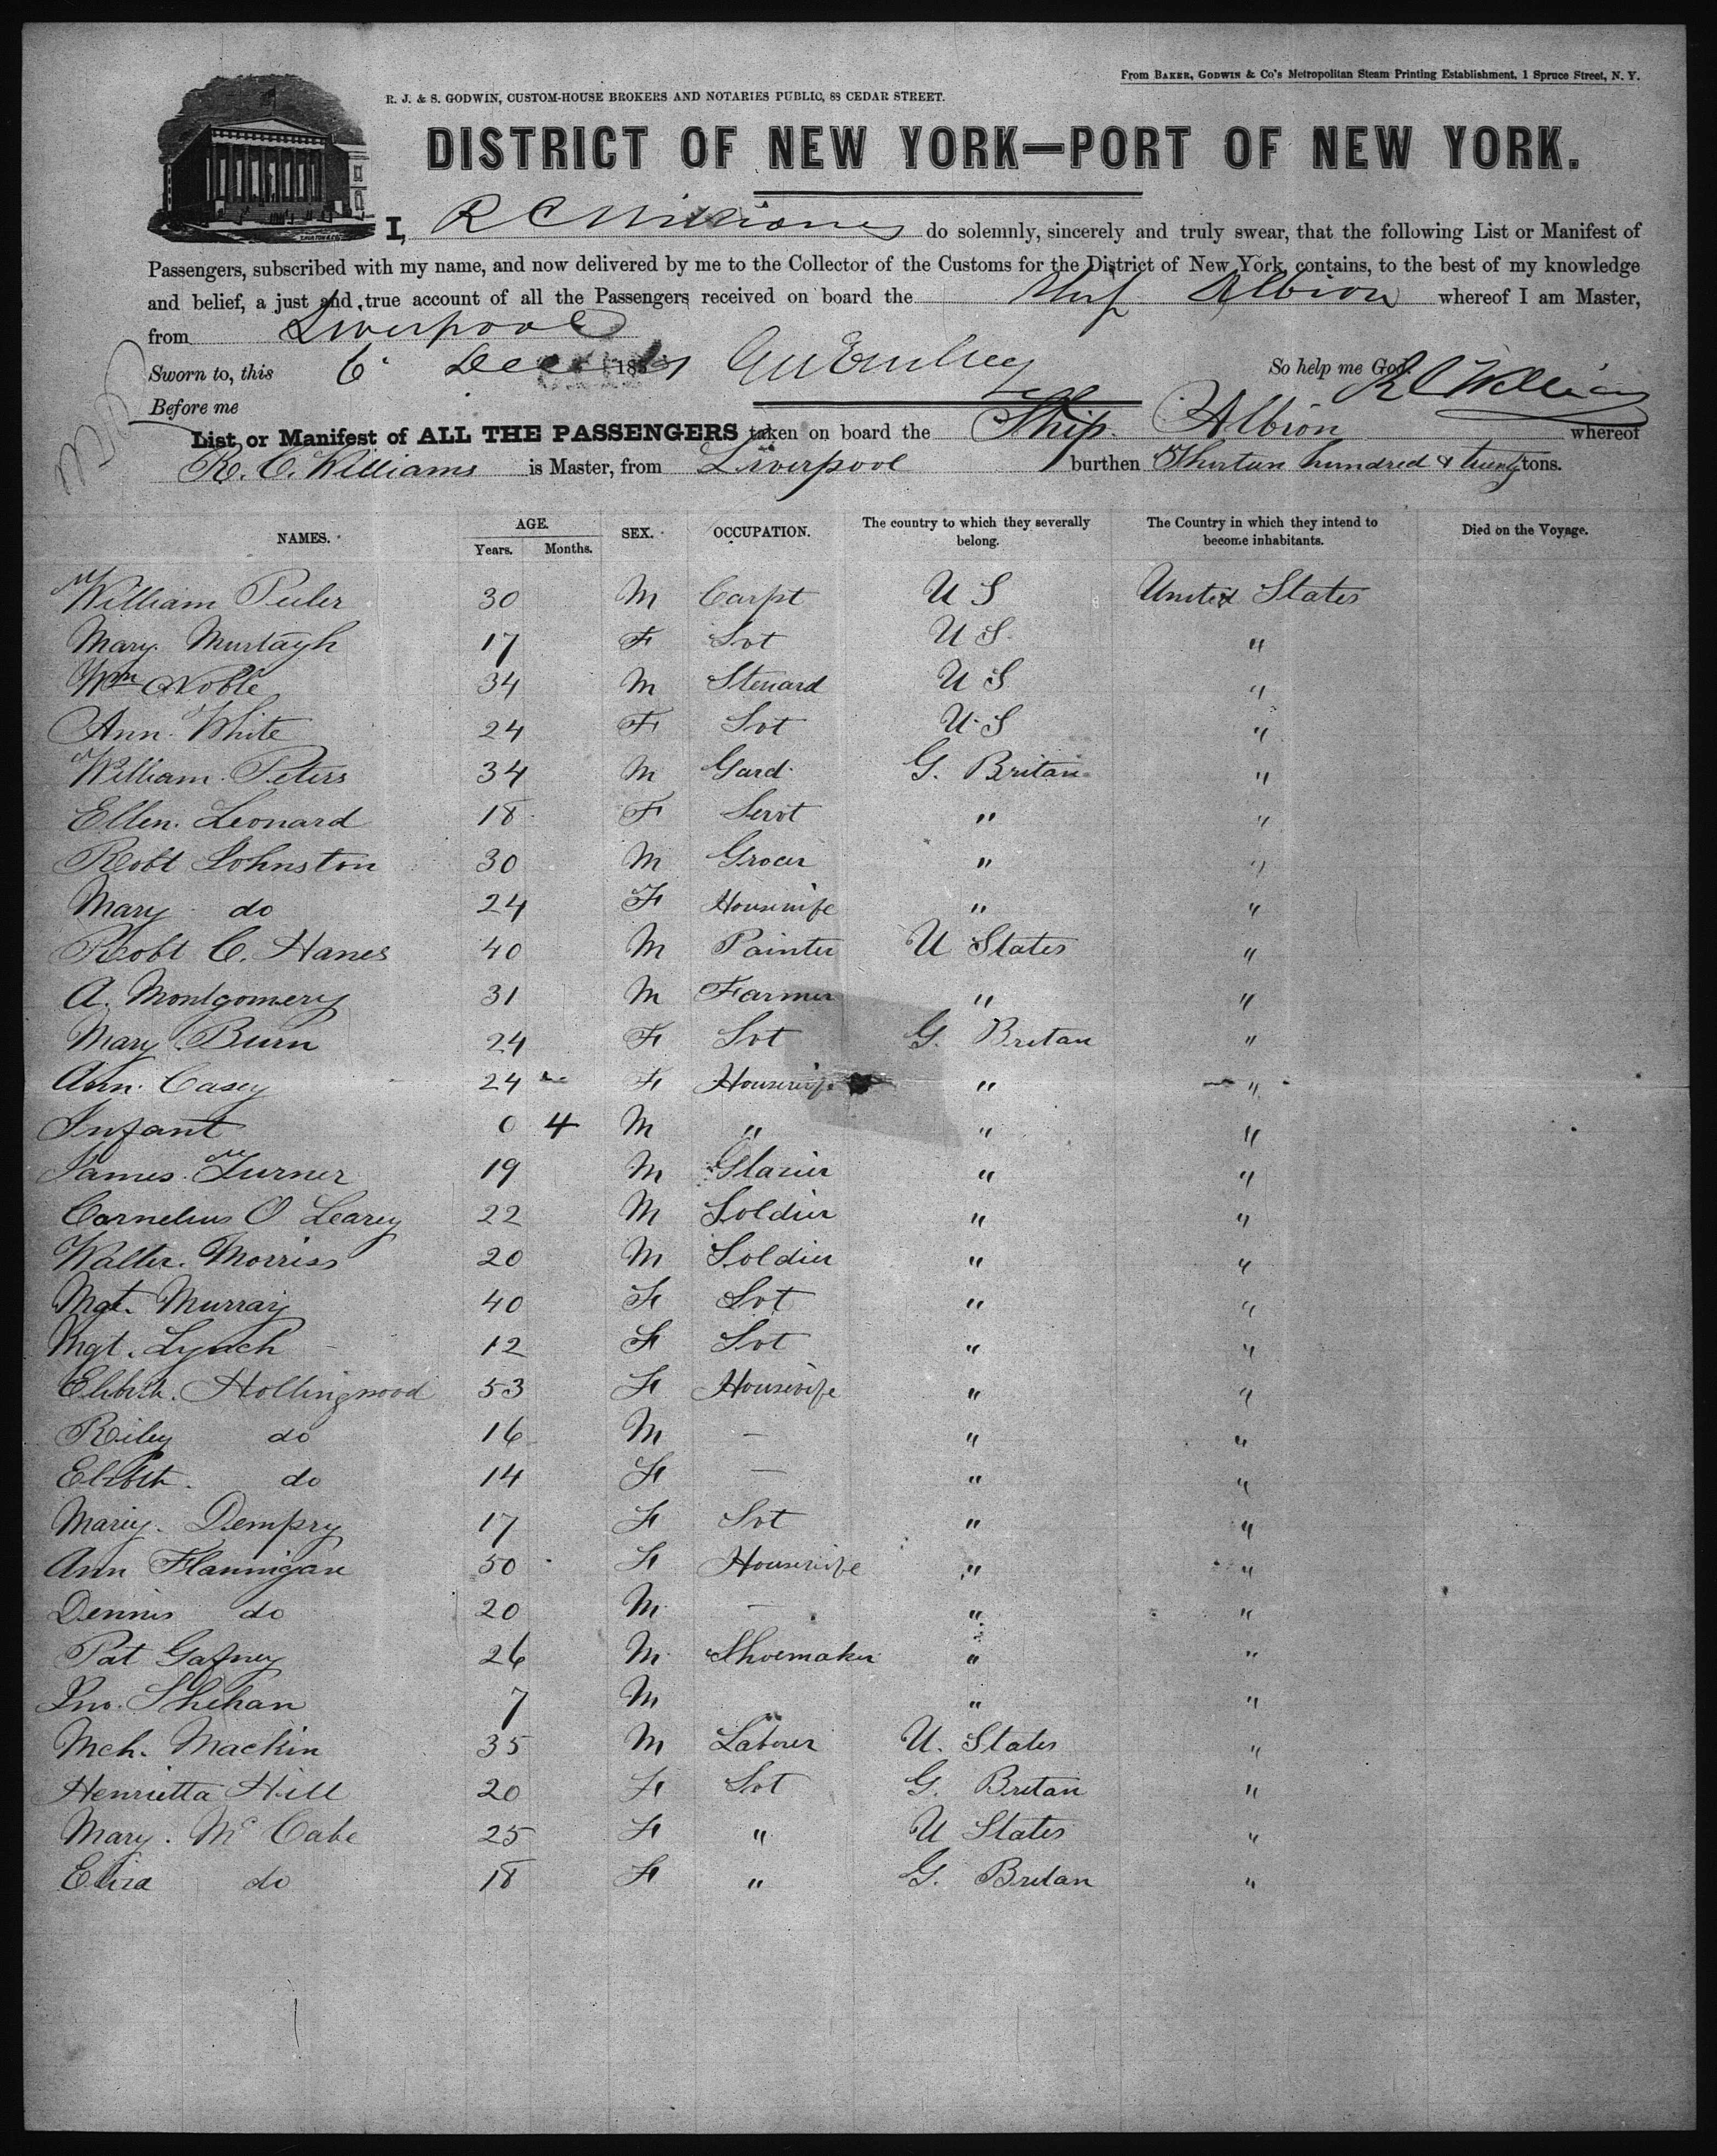 From BAKER, GODWIN & Co's Metropolitan Steam Printing Establishment, 1 Spruce Street, N. Y.
R. J. & S. GODWIN, CUSTOM-HOUSE BROKERS AND NOTARIES PUBLIC, 88 CEDAR STREET.
DISTRICT OF NEW YORK—PORT OF NEW YORK.
I, R C Williams do solemnly, sincerely and truly swear, that the following List or Manifest of
Passengers, subscribed with my name, and now delivered by me to the Collector of the Customs for the District of New York, contains, to the best of my knowledge
and belief, a just and true account of all the Passengers received on board the Ship Albion whereof I am Master,
from Liverpool
Sworn to, this 6 Dec 18 So help me God. R C Williams
Before me
List or Manifest of ALL THE PASSENGERS taken on board the Ship. Albion whereof
R. C. Williams is Master, from Liverpool burthen Thirteen hundred & twenty tons.
NAMES. AGE. Years. Months. SEX. OCCUPATION. The country to which they severally belong. The Country in which they intend to become inhabitants. Died on the Voyage.
William 30 M Carpt U S United States
Mary Murtagh 17 F Svt U S "
Wm Noble 34 M Steuard U S "
Ann White 24 F Svt U S "
William Peters 34 M Gard G. Britan "
Ellen Leonard 18 F Servt " "
Robt Johnston 30 M Grocer " "
Mary do 24 F Housewife " "
Robt C. Hanes 40 M Painter U States "
A. Montgomery 31 M Farmer " "
Mary Burn 24 F Svt G. Britan "
Ann Casey 24 F Housewife " "
Infant 0 4 M " " "
James Turner 19 M Glazier " "
Cornelius O Leary 22 M Soldier " "
Walter Morriss 20 M Soldier " "
Mgt. Murray 40 F Svt " "
Mgt. Lynch 12 F Svt " "
Elibth. Hollingwood 53 F Housewife " "
Riley do 16 M — " "
Elibth. do 14 F — " "
Mary Dempsy 17 F Svt " "
Ann Flannigan 50 F Housewife " "
Dennis do 20 M — " "
Pat Gafney 26 M Shoemaker " "
Jno. Shehan 7 M " "
Mch. Mackin 35 M Laborer U. States "
Henrietta Hill 20 F Svt G. Britan "
Mary Mc Cabe 25 F " U States "
Eliza do 18 F " G. Britan "